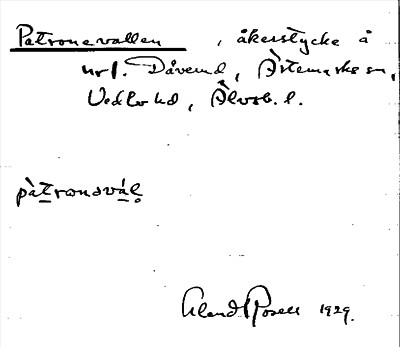 Patronevallen, åkerstycke å
url. Dåverud, Ärtemarks sn,
Vedbo hd, Älvsb. l.
pàtronsvál
Erland Rosell 1929.